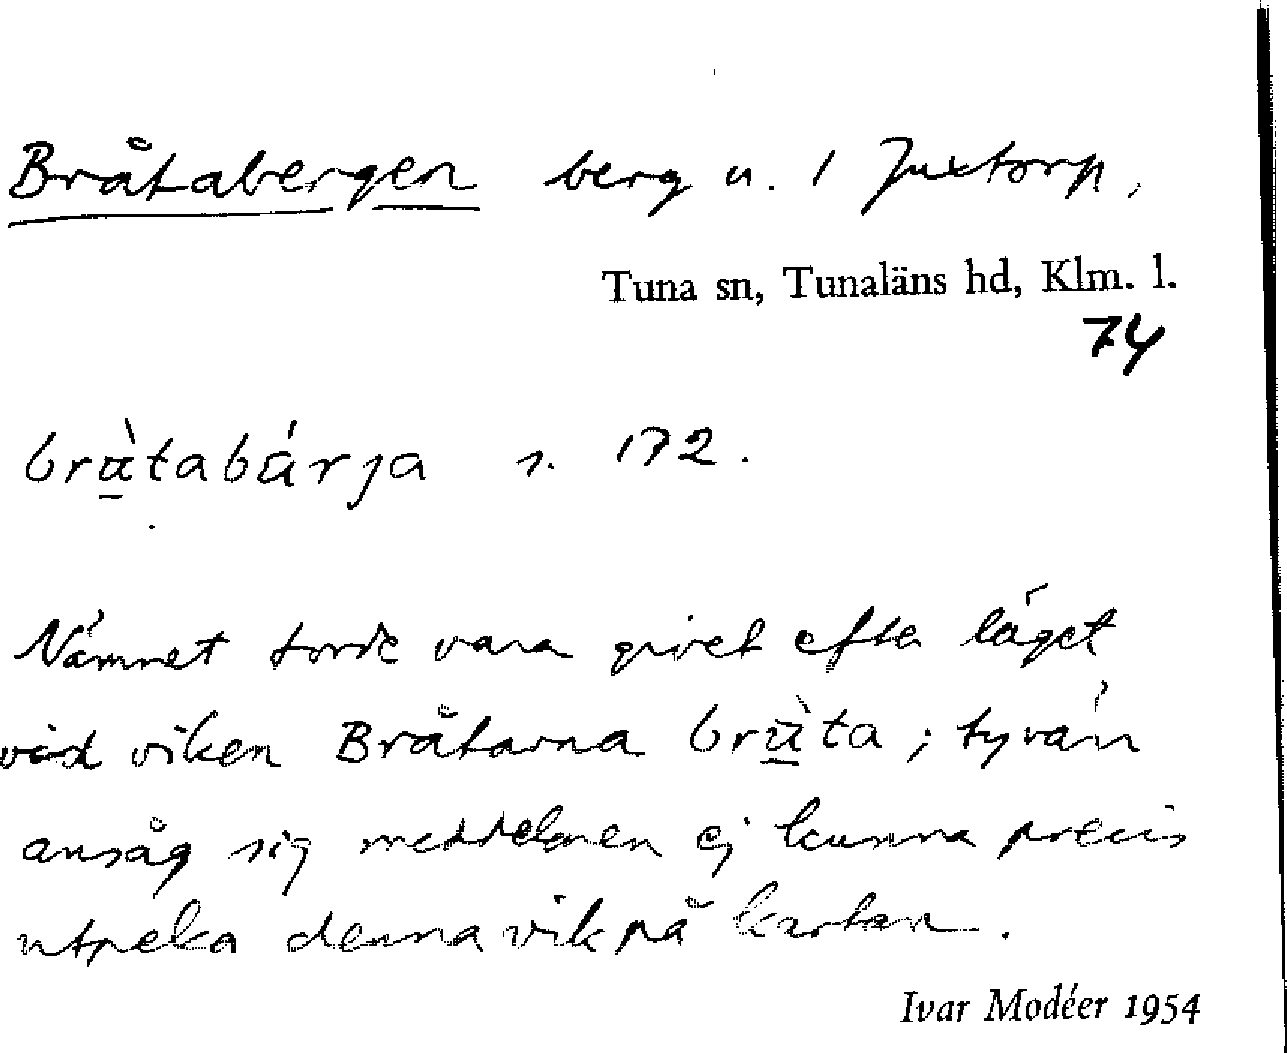 Bråtabergen berg u. / Juxtorp,
Tuna sn, Tunaläns hd, Klm. l.
74
brὰ̱tabárja s. 172.
Namnet torde vara givet efter läget
vid viken Bråtarna brὰ̱ta; tyvärr
ansåg sig meddelaren ej kunna precis
utpeka denna vik på kartan.
Ivar Modéer 1954